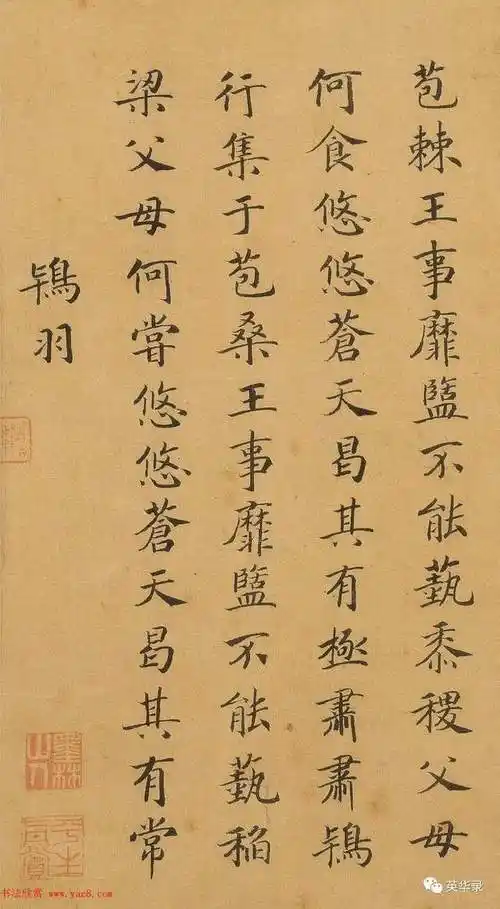 苞棘王事靡盬不能蓺黍稷父母
何食悠悠蒼天曷其有極肅肅鴇
行集于苞桑王事靡盬不能蓺稻
梁父母何嘗悠悠蒼天曷其有常
鴇羽
书法欣赏 www.yac8.com
英华录